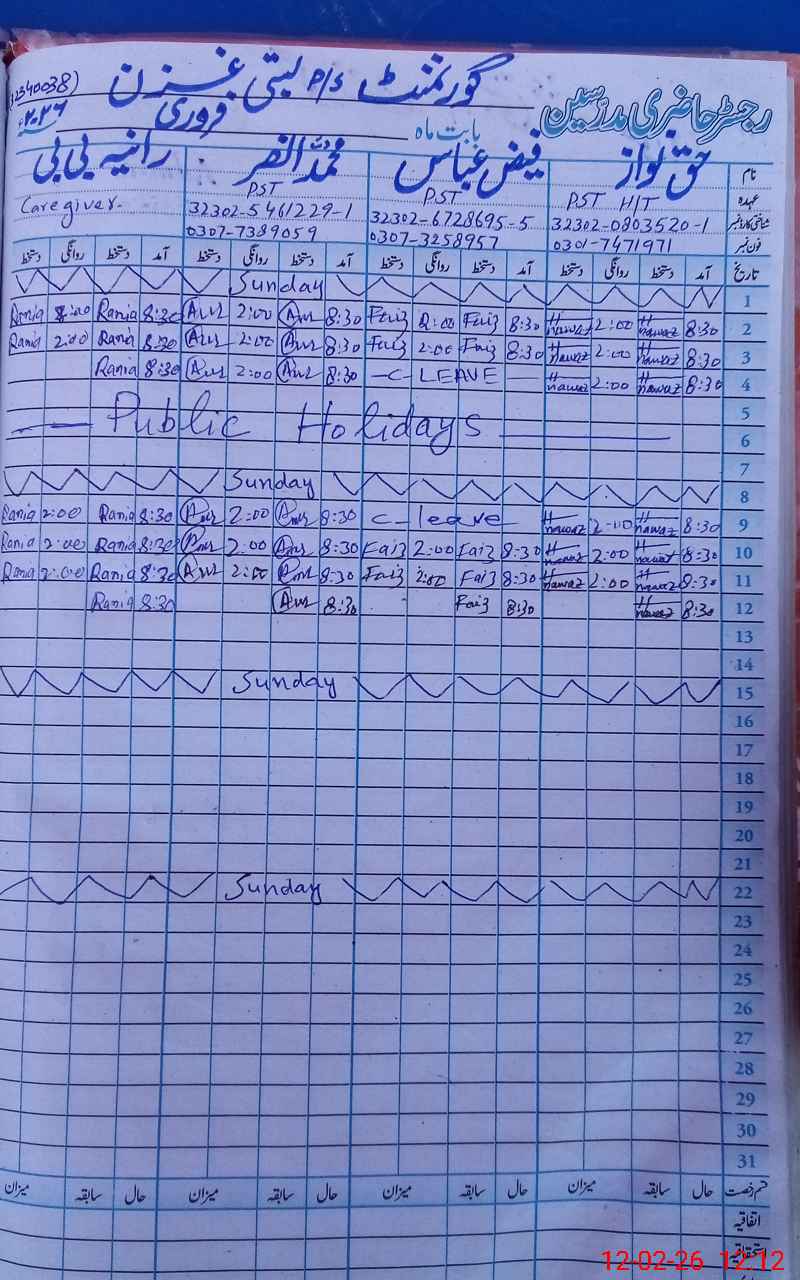 (32340038) گورنمنٹ P/S بستی غزن
رجسٹر حاضری مدرسین
بابت ماہ فروری ۲۰۲۶ء
نام حق نواز فیض عباس محمد النصر رانیہ بی بی
عہدہ PST H/T PST PST Caregiver.
شناختی کارڈ نمبر 32302-0803520-1 32302-6728695-5 32302-5461229-1
فون نمبر 0301-7471971 0307-3258957 0307-7389059
تاریخ آمد دستخط روانگی دستخط آمد دستخط روانگی دستخط آمد دستخط روانگی دستخط آمد دستخط روانگی دستخط
1 Sunday
2 8:30 H nawaz 2:00 H nawaz 8:30 Faiz 2:00 Faiz 8:30 Ans 2:00 Ans 8:30 Rania 2:00 Rania
3 8:30 H nawaz 2:00 H nawaz 8:30 Faiz 2:00 Faiz 8:30 Ans 2:00 Ans 8:30 Rania 2:00 Rania
4 8:30 H nawaz 2:00 H nawaz — C- LEAVE — 8:30 Ans 2:00 Ans 8:30 Rania
5
6 — Public Holidays —
7
8 Sunday
9 8:30 H nawaz 2:00 H nawaz C- leave 8:30 Ans 2:00 Ans 8:30 Rania 2:00 Rania
10 8:30 H nawaz 2:00 H nawaz 8:30 Faiz 2:00 Faiz 8:30 Ans 2:00 Ans 8:30 Rania 2:00 Rania
11 8:30 H nawaz 2:00 H nawaz 8:30 Faiz 2:00 Faiz 8:30 Ans 2:00 Ans 8:30 Rania 2:00 Rania
12 8:30 H nawaz 8:30 Faiz 8:30 Ans 8:30 Rania
13
14
15 Sunday
16
17
18
19
20
21
22 Sunday
23
24
25
26
27
28
29
30
31
قسم رخصت حال سابقہ میزان حال سابقہ میزان حال سابقہ میزان حال سابقہ میزان
اتفاقیہ
استحقاقیہ
12-02-26 12:12